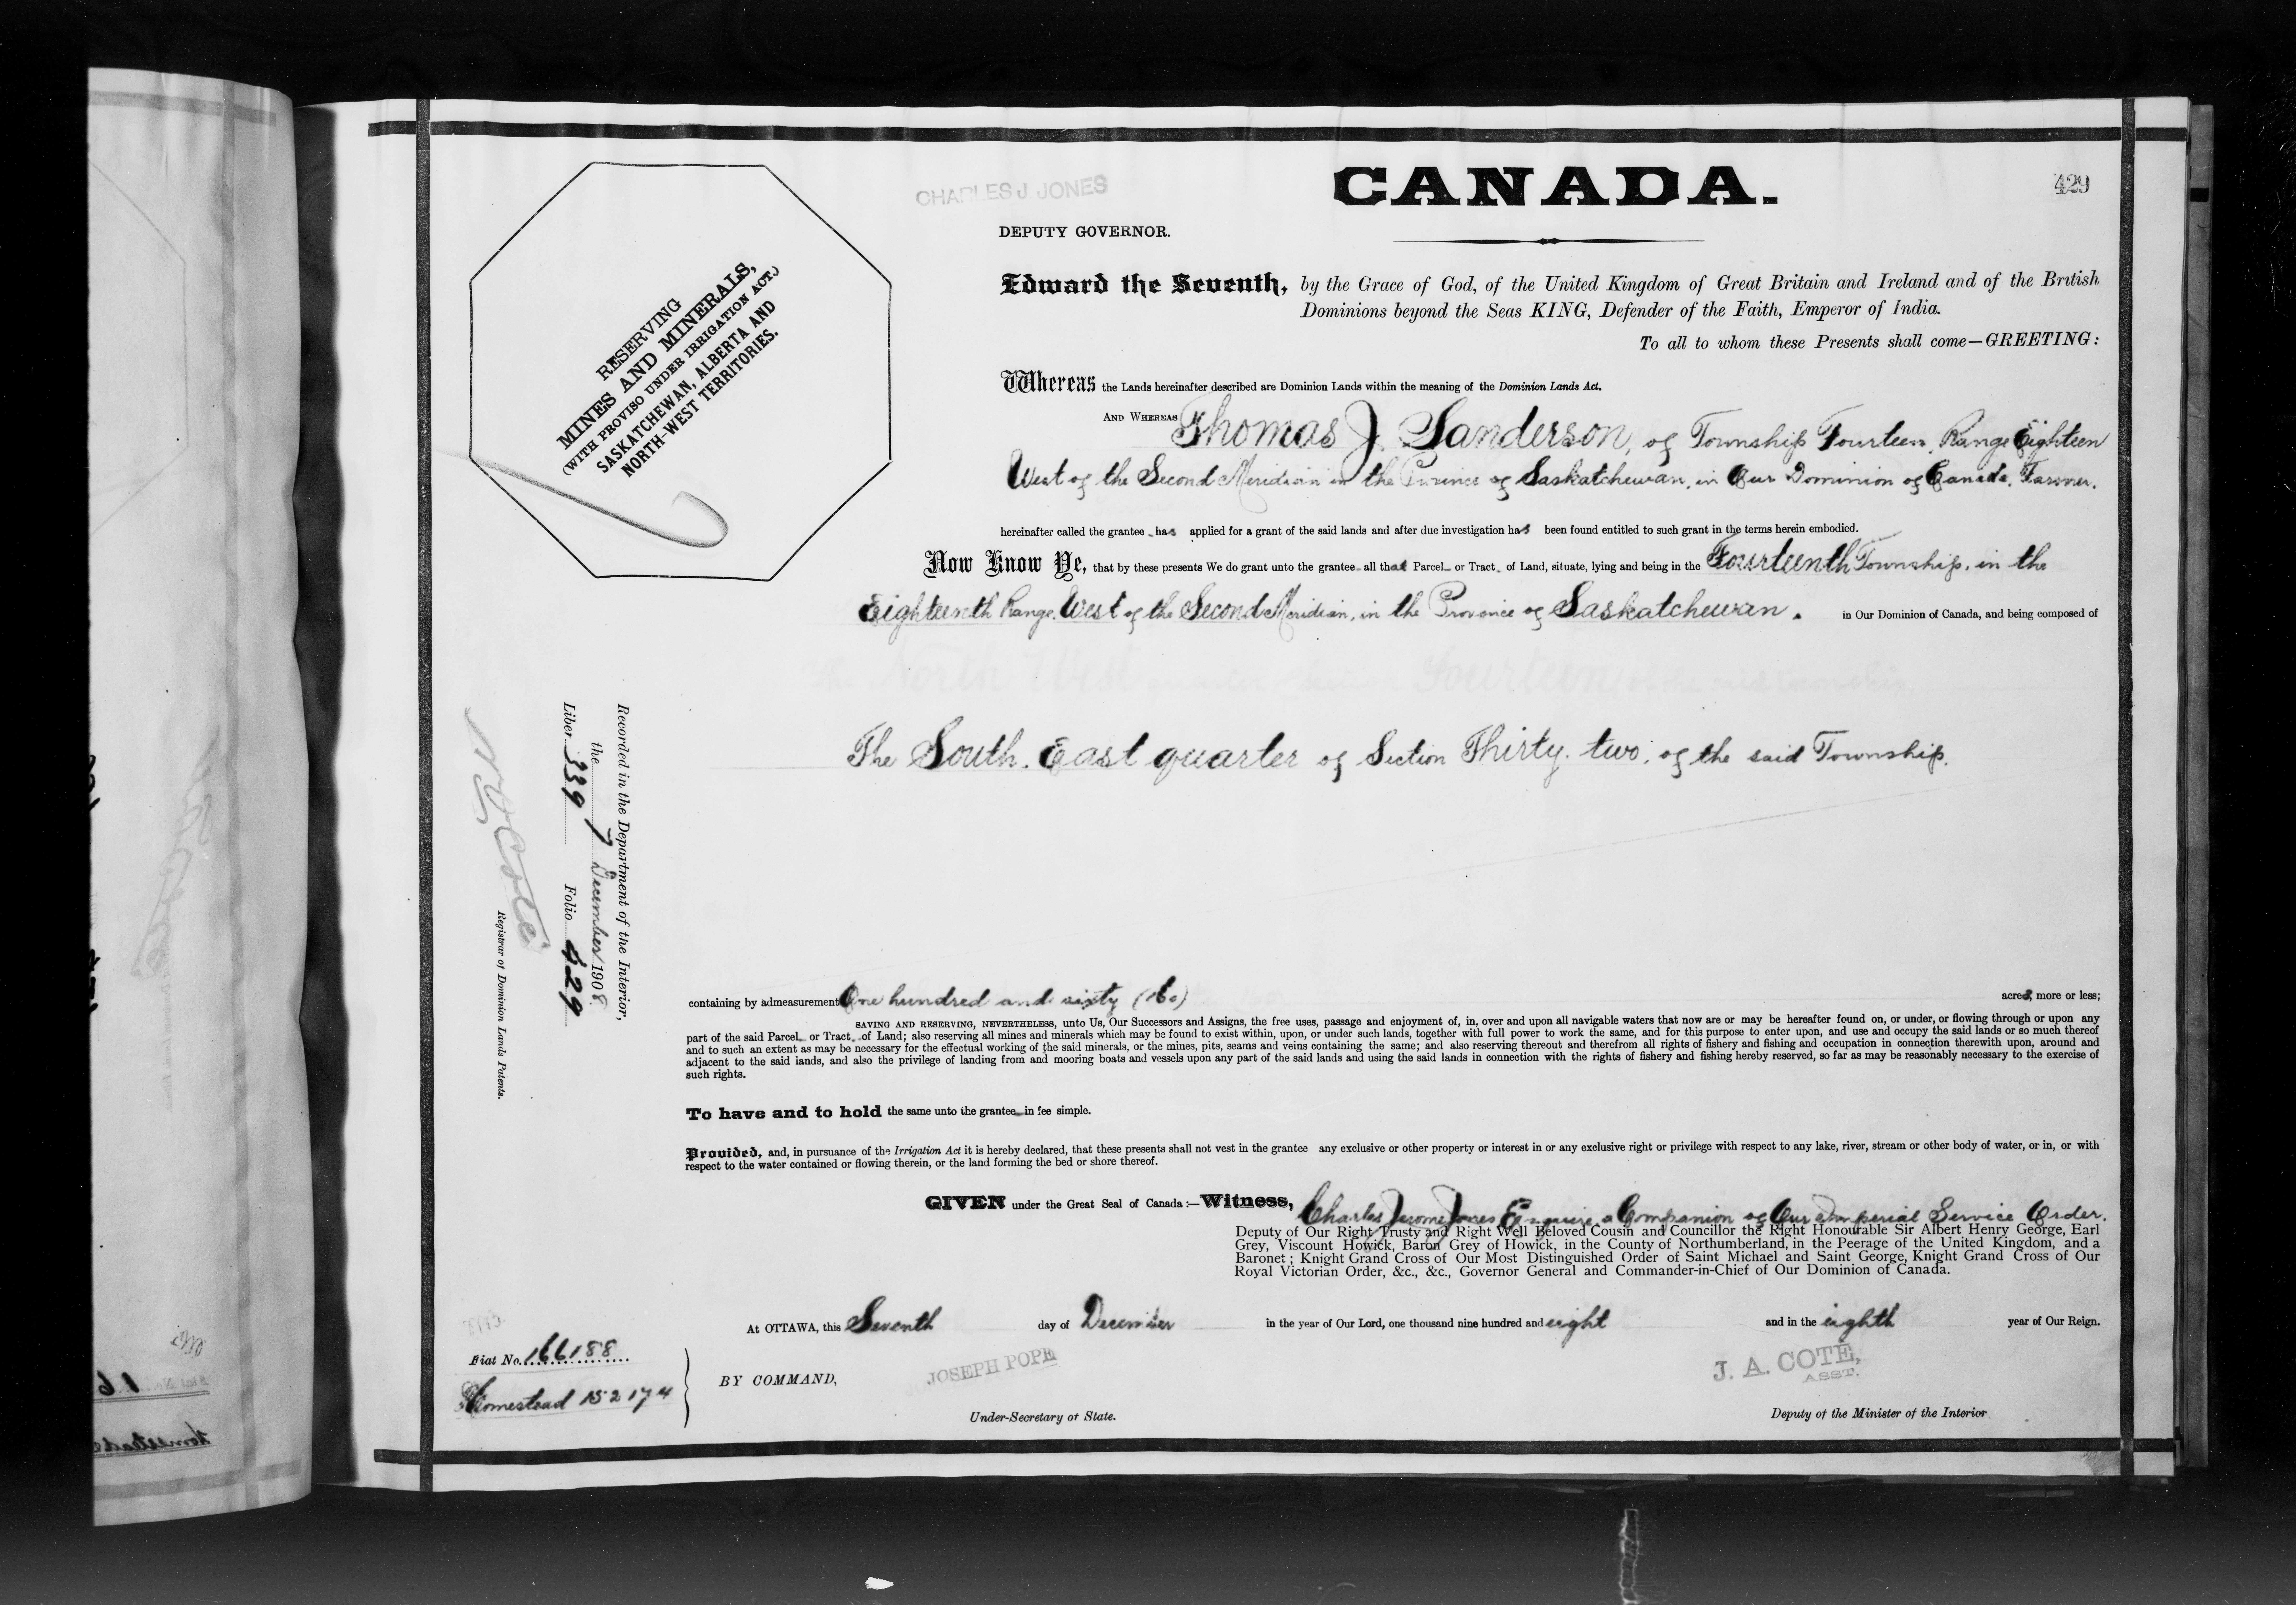 CANADA.
429
CHARLES J JONES
DEPUTY GOVERNOR.
RESERVING
MINES AND MINERALS,
(WITH PROVISO UNDER IRRIGATION ACT.)
SASKATCHEWAN, ALBERTA AND
NORTH-WEST TERRITORIES.
Edward the Seventh, by the Grace of God, of the United Kingdom of Great Britain and Ireland and of the British
Dominions beyond the Seas KING, Defender of the Faith, Emperor of India.
To all to whom these Presents shall come—GREETING:
Whereas the Lands hereinafter described are Dominion Lands within the meaning of the Dominion Lands Act.
AND WHEREAS Thomas J. Sanderson, of Township Fourteen, Range Eighteen
West of the Second Meridian in the Province of Saskatchewan, in Our Dominion of Canada, Farmer.
hereinafter called the grantee has applied for a grant of the said lands and after due investigation has been found entitled to such grant in the terms herein embodied.
Now Know Ye, that by these presents We do grant unto the grantee all that Parcel or Tract of Land, situate, lying and being in the Fourteenth Township, in the
Eighteenth Range, West of the Second Meridian, in the Province of Saskatchewan. in Our Dominion of Canada, and being composed of
The North West quarter, Section Fourteen, of the said Township
The South. East quarter of Section Thirty. two, of the said Township.
containing by admeasurement One hundred and sixty (160) acres, more or less;
SAVING AND RESERVING, NEVERTHELESS, unto Us, Our Successors and Assigns, the free uses, passage and enjoyment of, in, over and upon all navigable waters that now are or may be hereafter found on, or under, or flowing through or upon any
part of the said Parcel or Tract of Land; also reserving all mines and minerals which may be found to exist within, upon, or under such lands, together with full power to work the same, and for this purpose to enter upon, and use and occupy the said lands or so much thereof
and to such an extent as may be necessary for the effectual working of the said minerals, or the mines, pits, seams and veins containing the same; and also reserving thereout and therefrom all rights of fishery and fishing and occupation in connection therewith upon, around and
adjacent to the said lands, and also the privilege of landing from and mooring boats and vessels upon any part of the said lands and using the said lands in connection with the rights of fishery and fishing hereby reserved, so far as may be reasonably necessary to the exercise of
such rights.
To have and to hold the same unto the grantee in fee simple.
Provided, and, in pursuance of the Irrigation Act it is hereby declared, that these presents shall not vest in the grantee any exclusive or other property or interest in or any exclusive right or privilege with respect to any lake, river, stream or other body of water, or in, or with
respect to the water contained or flowing therein, or the land forming the bed or shore thereof.
GIVEN under the Great Seal of Canada:—Witness, Charles Jerome Jones Esquire, a Companion of Our Imperial Service Order,
Deputy of Our Right Trusty and Right Well Beloved Cousin and Councillor the Right Honourable Sir Albert Henry George, Earl
Grey, Viscount Howick, Baron Grey of Howick, in the County of Northumberland, in the Peerage of the United Kingdom, and a
Baronet; Knight Grand Cross of Our Most Distinguished Order of Saint Michael and Saint George, Knight Grand Cross of Our
Royal Victorian Order, &c., &c., Governor General and Commander-in-Chief of Our Dominion of Canada.
At OTTAWA, this Seventh day of December in the year of Our Lord, one thousand nine hundred and eight and in the eighth year of Our Reign.
BY COMMAND,
JOSEPH POPE
Under-Secretary of State.
J. A. COTÉ,
ASST.
Deputy of the Minister of the Interior
Fiat No. 166188
Homestead 152174
Recorded in the Department of the Interior,
the 7 December 1908.
Liber 339 Folio 429
N O Coté
Registrar of Dominion Lands Patents.